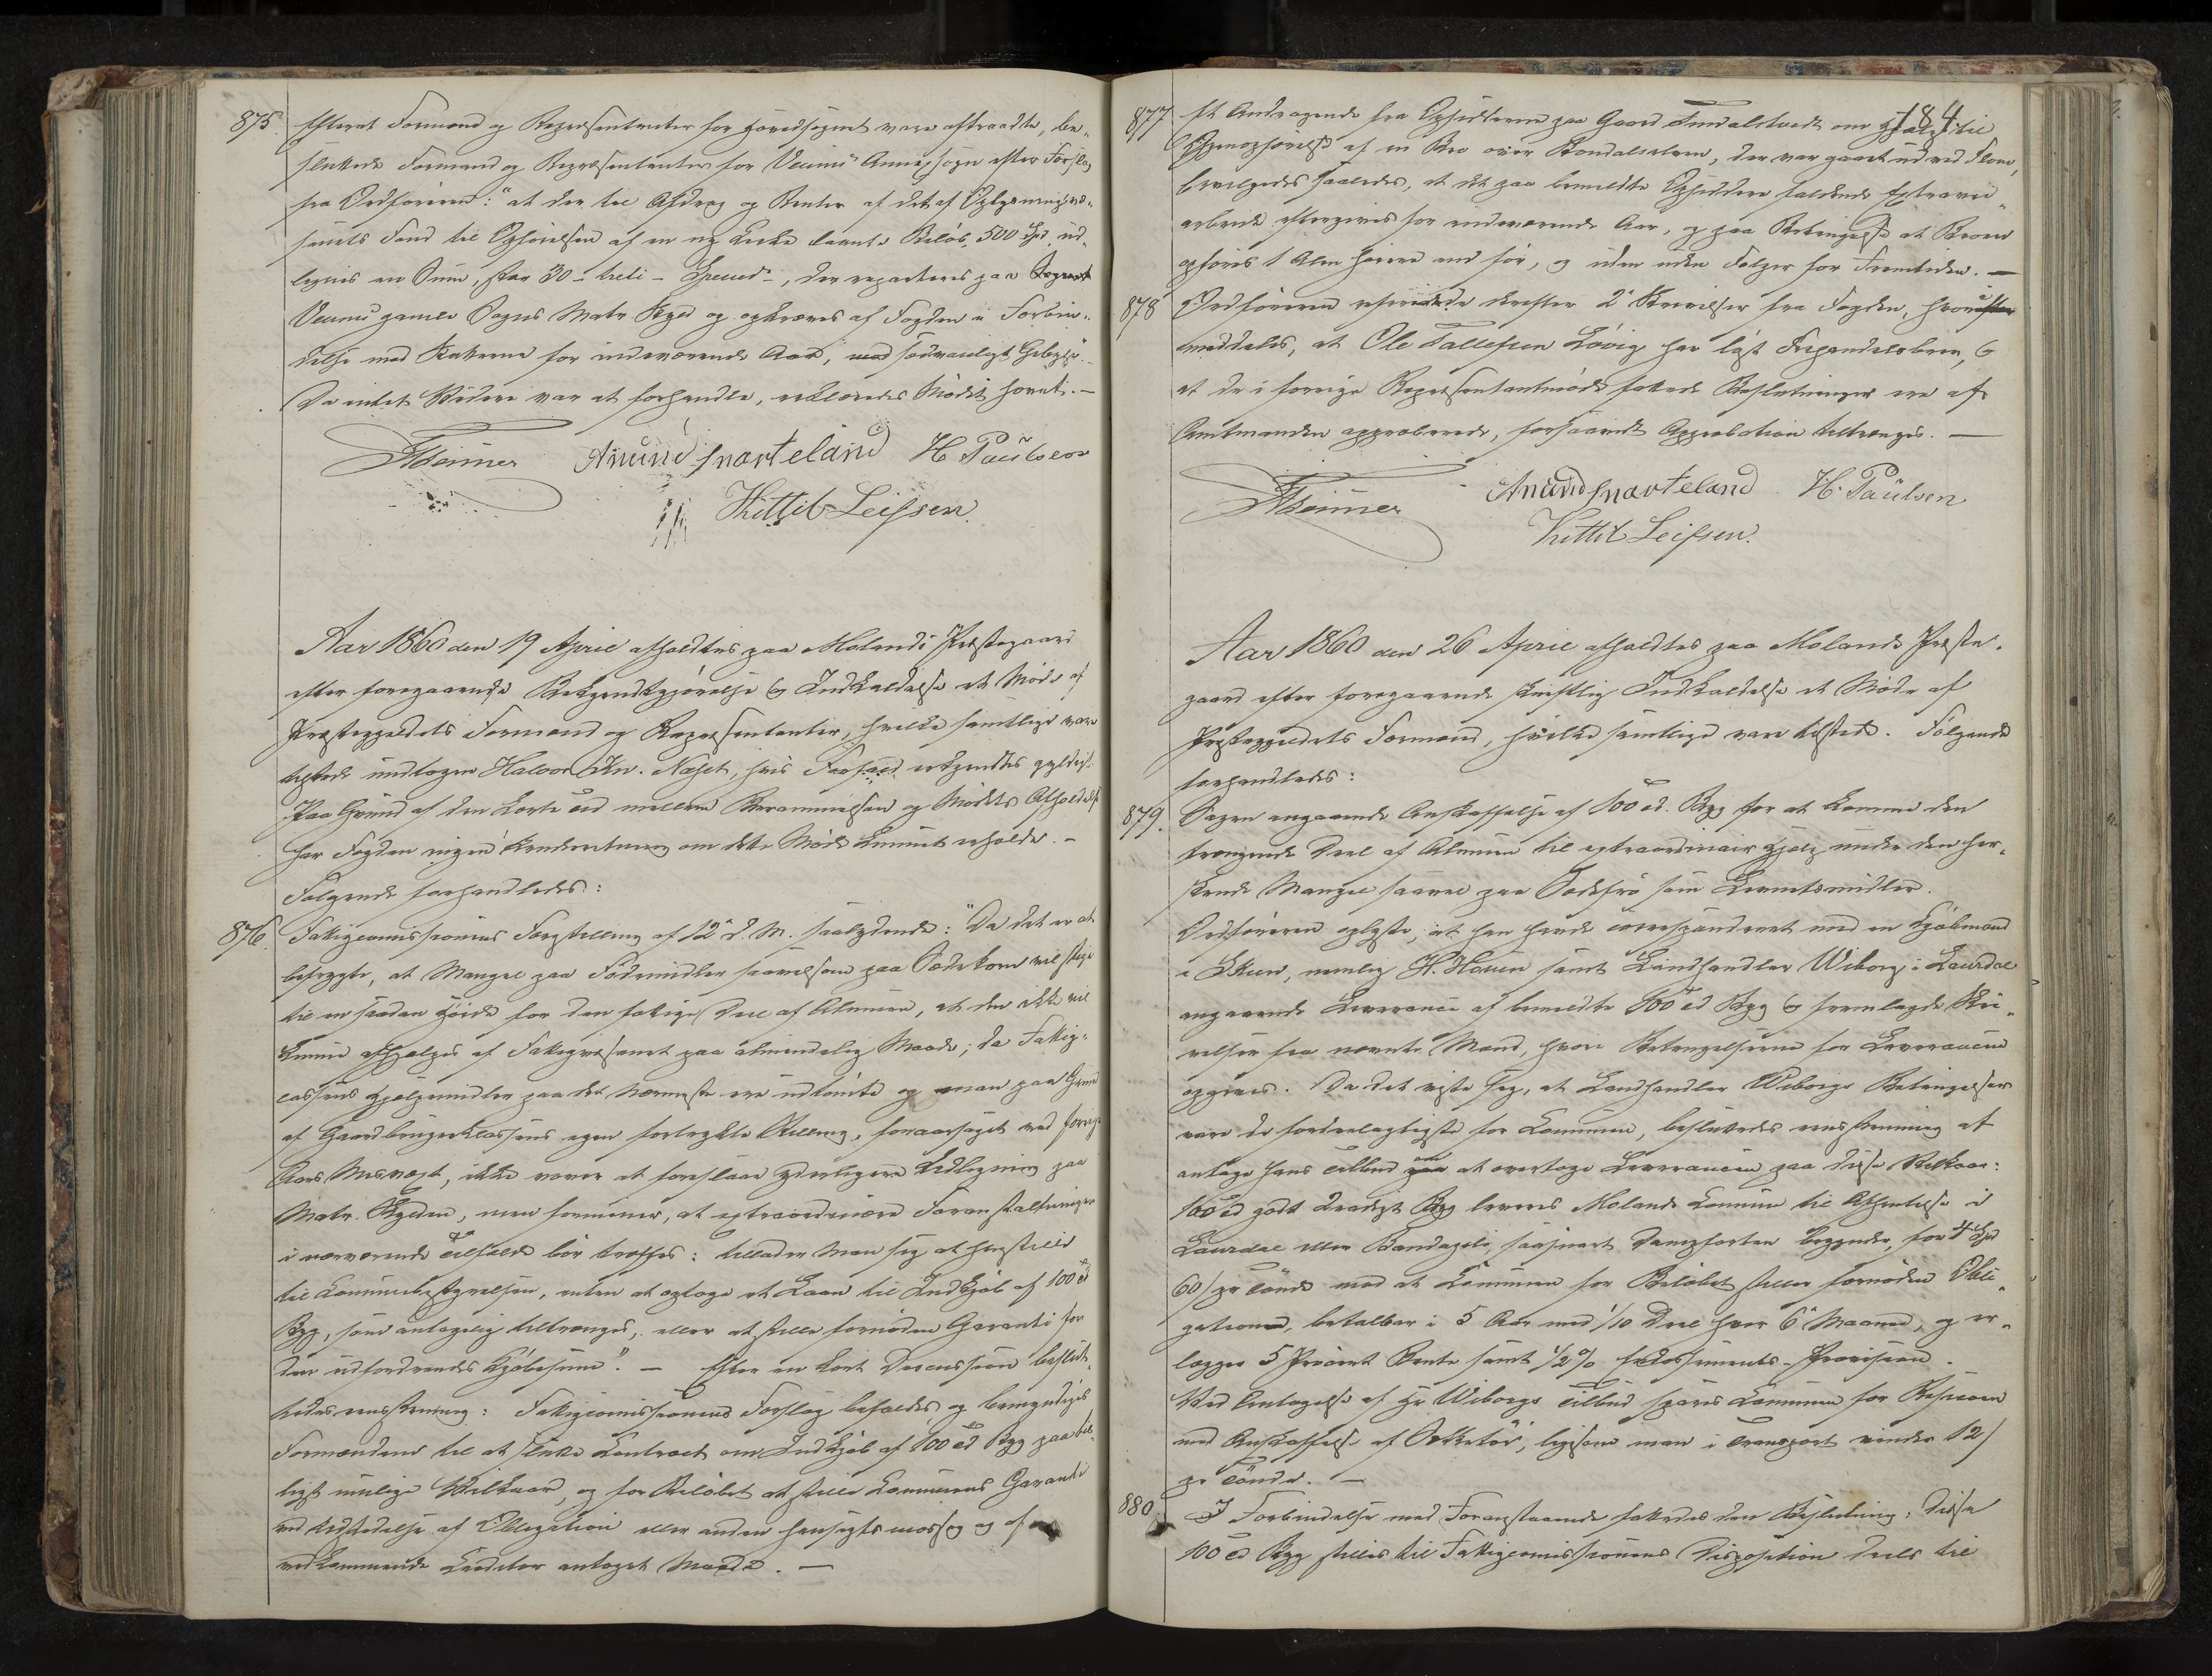 875. Efterat Formænd og Repræsentanter for Hovedsognet vare aftraadte, be-
sluttede Formænd og Repræsentanter for Veums Annexsogn efter Forslag
fra Ordføreren: "at der til Afdrag og Renter af det af Oplysningsvæ-
senets Fond til Opførelsen af en ny Kirke laante Beløb, 500 Spd, ud-
lignes en Sum, stor 30 - treti - Speciesd., der repartères paa
Veums gamle Sogns Matr. Skyld og opkræves af Fogden i Forbin-
delse med Skatterne for indeværende Aar, med sædvanligt Gebyhr".
Da intet Videre var at forhandle, erklæredes Mødet hævet. —
Anund Snarteland H Paulsen
Kittil Leifsen.
Aar 1860 den 19 April afholdtes paa Molands Præstegaard
efter foregaaende Bekjendtgjørelse og Indkaldelse et Møde af
Præstegjeldets Formænd og Repræsentanter, hvilke samtlige vare
tilstede undtagen Halvor Kn. Næset, hvis Forfald erkjendtes gyldigt.
Paa Grund af den korte Tid mellem Berammelsen og Mødets Afholdelse
har Fogden ingen Underretning om dette Møde kunnet erholde. —
Følgende forhandledes:
876. Fattigcommissionens Forestilling af 12 d. M. saalydende: "Da det er at
befrygte, at Mangel paa Fødemidler saavelsom paa Sædekorn vil stige
til en saadan Høide for den fattige Deel af Almuen, at den ikke vil
kunne afhjælpes af Fattigvæsenet paa almindelig Maade; da Fattig-
cassens Hjælpemidler paa det Nærmeste ere udtømte og man paa Grund
af Gaardbrugerklassens egen fortrykte Stilling, foraarsaget ved forrige
Aars Misvext, ikke vover at foreslaae yderligere Udligning paa
Matr. Skylden, men formener, at extraordinære Foranstaltninger
i nærværende Tilfælde bør træffes: tillader Man sig at henstille
til Communebestyrelsen, enten at optage et Laan til Indkjøb af 100 Td
Byg, som antagelig tiltrænges, eller at stille fornøden Garanti for
den udfordrende Kjøbesum". — Efter en kort Discussion beslut-
tedes eenstemmig: Fattigcommissionens Forslag bifaldes, og bemyndiges
Formændene til at slutte Contract om Indkjøb af 100 Td Byg paa bil-
ligst mulige Vilkaar, og for Beløbet at stille Communens Garanti
ved Udstedelse af Obligation eller anden hensigtsmæssig og af
vedkommende Creditor antaget Maade. —
184
877 Et Andragende fra Opsidderne paa Gaard om Hjælp til
Gjenopførelse af en Bro over Bondalselven, der var gaaet ud ved Flom,
bevilgedes saaledes, at det paa bemeldte Opsiddere faldende Extravei-
arbeide eftergives for indeværende Aar, og paa Betingelse at Broen
opføres 1 Alen høiere end før, og uden Følger for Fremtiden. —
878 Ordføreren refererede derefter 2 Skrivelser fra Fogden, hvori
meddeles, at Ole Tallefsen Løvig har løst Frihandelsbrev, og
at de i forrige Repræsentantmøde fattede Beslutninger ere af
Amtmanden approberede, forsaavidt Approbation tiltrænges. —
Anund Snarteland H. Paulsen
Kittil Leifsen.
Aar 1860 den 26 April afholdtes paa Molands Præste-
gaard efter foregaaende skriftlig Indkaldelse et Møde af
Præstegjeldets Formænd, hvilke samtlige vare tilstede. Følgende
forhandledes:
879. Sagen angaaende Anskaffelse af 100 Td. Byg for at komme den
trængende Deel af Almuen til extraordinair Hjælp under den her-
skende Mangel saavel paa Sædefrø som Levnetsmidler.
Ordføreren oplyste, at han havde correspondreret med en Kjøbmand
i Skien, nemlig H. Houen samt Landhandler Wiborg i Laurdal
angaaende Leverance af bemeldte 100 Td Byg og fremlagde Skri-
velser fra nævnte Mænd, hvori Betingelserne for Leverancen
opgives. Da det viste sig, at Landhandler Wiborgs Betingelser
vare de fordeelagtigste for Communen, besluttedes eenstemmig at
antage hans Tilbud om at overtage Leverancen paa disse Vilkaar:
100 Td godt Byg leveres Molands Commune til Afhentelse i
Laurdal eller Bandagsli, saasnart Dampfarten begynder, for 4 Spd
60 ß pr Tønde mod at Communen for Beløbet stiller fornøden Obli-
gation, betalbar i 5 Aar med 1/10 Deel hver 6 Maaned, og er-
lægger 5 Procent Rente samt 1/2 % Provision.
Ved Antagelse af Hr Wiborgs Tilbud spares Communen for Risicoen
med Anskaffelse af, ligesom man i Transport vinder 12 ß
pr Tønde. —
880. I Forbindelse med Foranstaaende fattedes den Beslutning: Disse
100 Td Byg stilles til Fattigcommissionens Disposition deels til